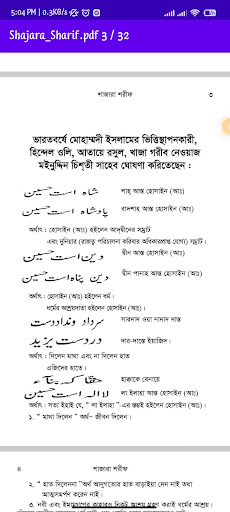 5:04 PM | 0.3KB/s
Shajara_Sharif.pdf 3 / 32
শাজারা শরীফ ৩
ভারতবর্ষে মোহাম্মদী ইসলামের ভিত্তিস্থাপনকারী,
হিন্দেল ওলি, আতায়ে রসুল, খাজা গরীব নেওয়াজ
মইনুদ্দিন চিশ্‌তী সাহেব ঘোষণা করিতেছেন :
شاہ است حسین শাহ্ আস্ত হোসাইন (আঃ)
پادشاہ است حسین বাদশাহ আস্ত হোসাইন (আঃ)
অর্থাৎ : হোসাইন (আঃ) হইলেন আধ্যাত্মিক সম্রাট
এবং দুনিয়ার (রাজত্ব পরিচালনা করিবার অধিকারপ্রাপ্ত যোগ্য) সম্রাট।
دین است حسین দ্বীন আস্ত হোসাইন (আঃ)
دین پناہ است حسین দ্বীন পানাহ আস্ত হোসাইন (আঃ)
অর্থাৎ : হোসাইন (আঃ) হইলেন ধর্ম।
ধর্মের আশ্রয়দাতা হইলেন হোসাইন (আঃ)।
سرداد و نداد دست সারদাদ ওয়া নাদাদ দাস্ত
در دست یزید দার-দাস্তে ইয়াজিদ।
অর্থাৎ : দিলেন মাথা এবং না দিলেন হাত
এজিদের হাতে।
حقا کہ بنائے হাক্কাকে বেনায়ে
لا الہ است حسین লা ইলাহা আস্ত হোসাইন (আঃ)
অর্থাৎ : সত্য ইহাই যে, " লা ইলাহা "-এর স্তম্ভই হইলেন হোসাইন (আঃ)।
১. " মাথা দিলেন " অর্থ – জীবন দিলেন।
৪ শাজারা শরীফ
২. " হাত দিলেননা "অর্থ আনুগত্যের হাত বাড়াইয়া দেন নাই তথা
আত্মসমর্পণ করেন নাই।
৩. নবী এবং ইমামগণের রাজত্বের নিকট আশ্রয় গ্রহণ করাই ধর্মের আশ্রয়।